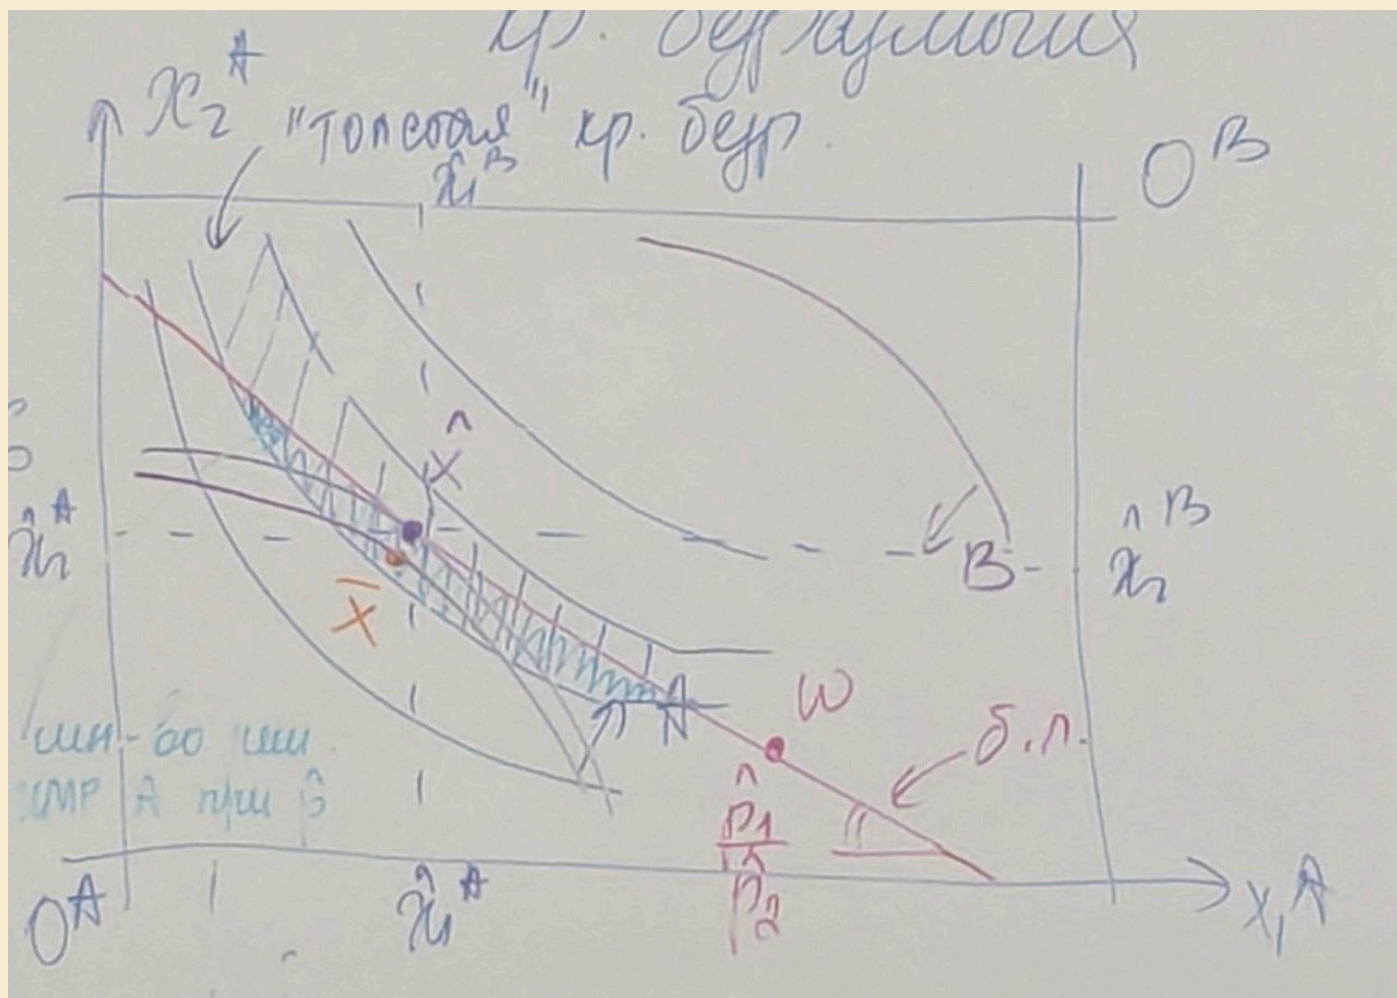 кр. безразличия
x₂ᴬ
"толстая" кр. безр.
x̂₁ᴮ
Oᴮ
x̂
x̂₂ᴬ
B
x̂₂ᴮ
x̄
A
ω
б.л.
мн-во
A при p̂
p̂₁
p̂₂
Oᴬ
x̂₁ᴬ
x₁ᴬ